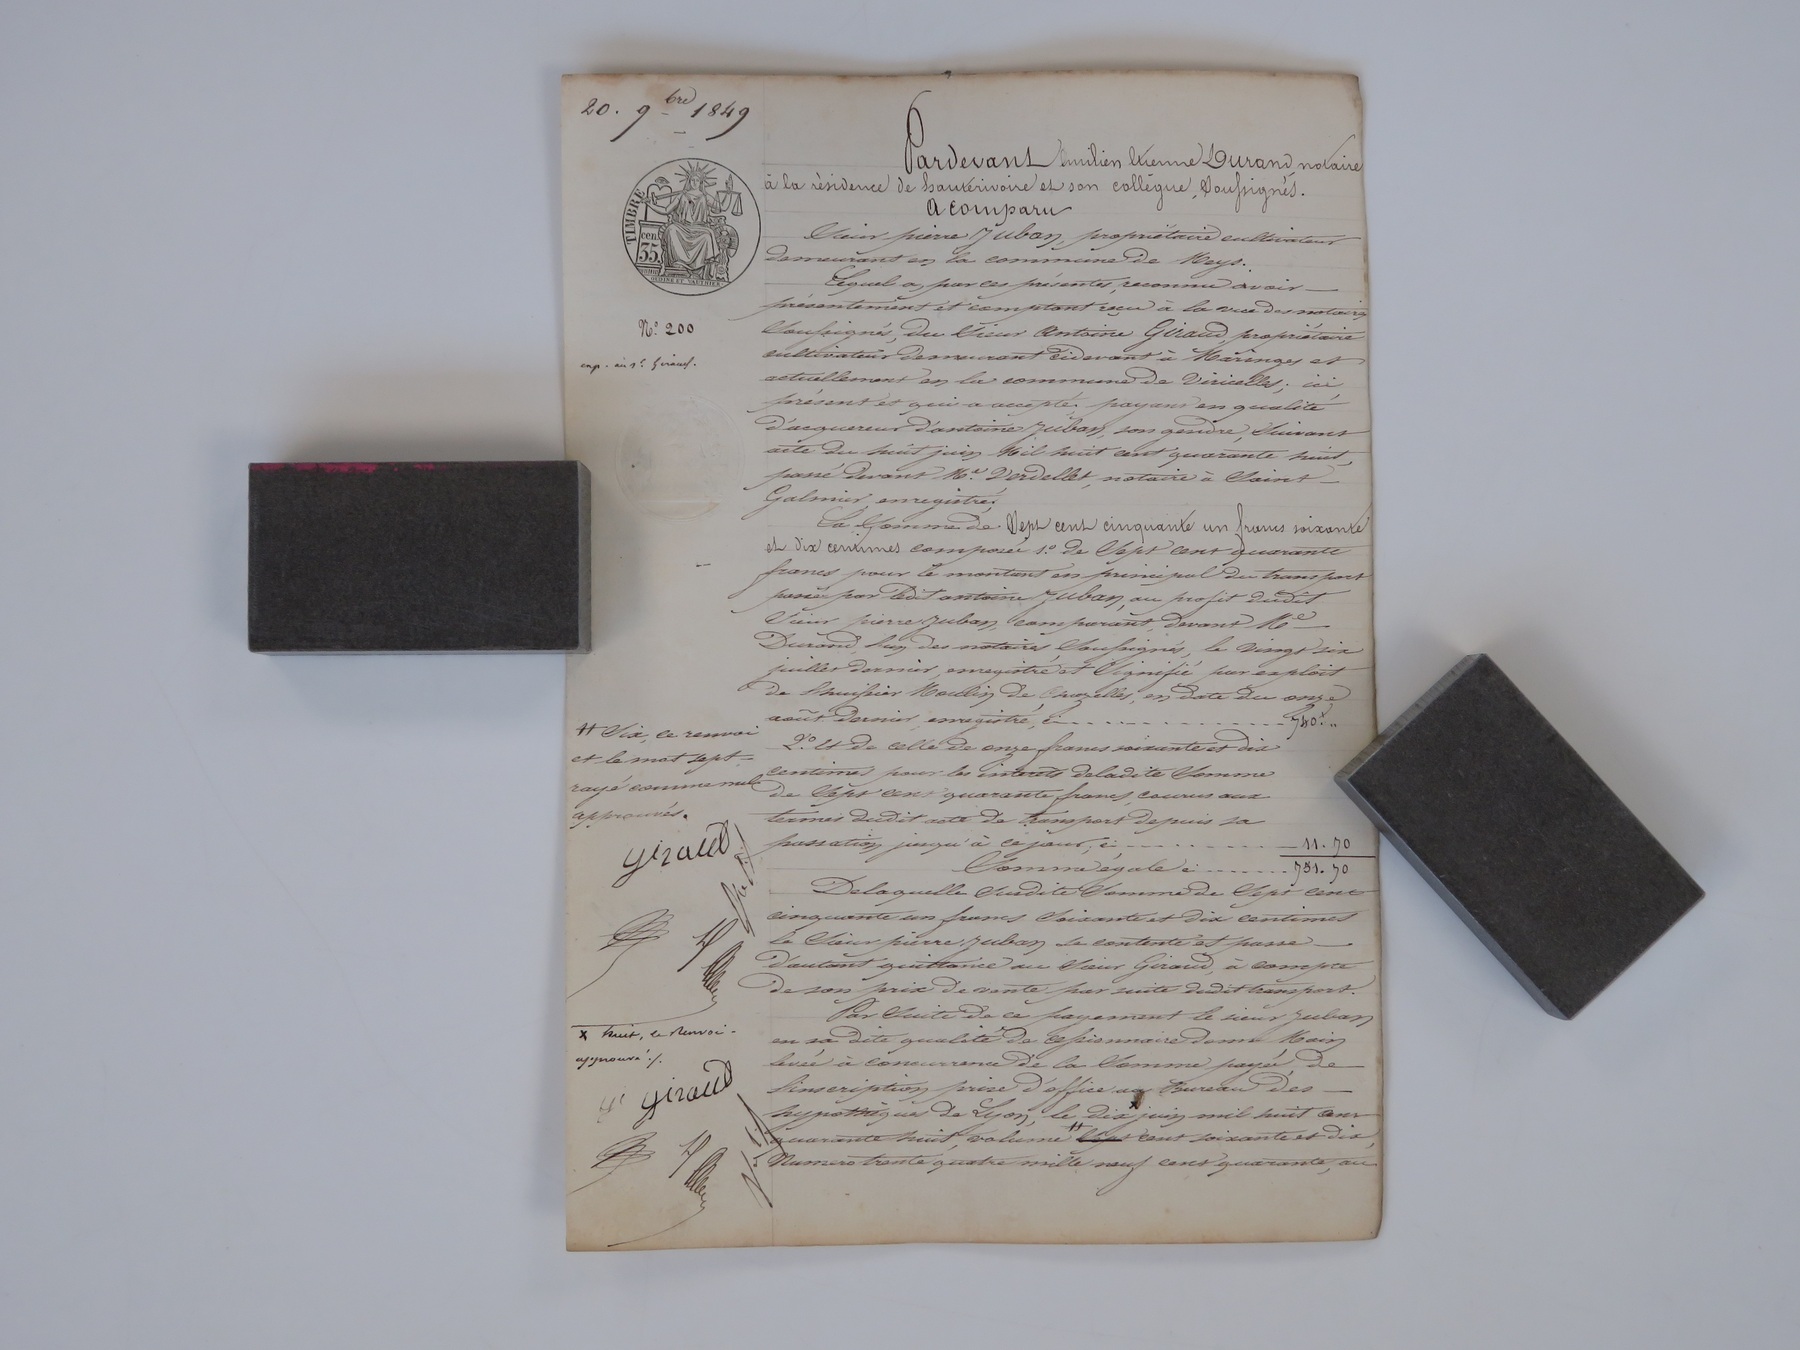 20. 9bre 1849
TIMBRE
cen.
35.
N.° 200
exp. au sr. Giraud.
Pardevant Emilien Etienne Durand, notaire
à la résidence de hauterivoire et son collègue, Soussignés.
A comparu
Sieur pierre Juban, propriétaire cultivateur
demeurant en la commune de Meys.
Lequel a, par ces présentes, reconnu avoir
présentement et comptant reçu à la vue des notaires
Soussignés, du Sieur Antoine Giraud, propriétaire
cultivateur demeurant cidevant à Maringes et
actuellement en la commune de Viricelles; ici
présent et qui a accepté, payant en qualité
d'acquereur d'antoine Juban, son gendre, Suivant
acte du huit juin Mil huit cent quarante huit,
passé devant Me. Verdellet, notaire à Saint
Galmier, enregistré,
La Somme de Sept cent cinquante un francs soixante
et dix centimes composée 1.° de Sept cent quarante
francs pour le montant en principal du transport
passé par ledit antoine Juban, au profit dudit
Sieur pierre Juban, comparant, devant Me
Durand, l'un des notaires Soussignés, le vingt six
juillet dernier, enregistré et Signifié par exploit
de l'huissier Moulin de Chazelles, en date du onze
août dernier, enregistré, ci 740f. "
2.° Et de celle de onze francs soixante et dix
centimes pour les intérêts deladite Somme
de Sept cent quarante francs, courus aux
termes dudit acte de transport depuis sa
passation jusqu'à ce jour, ci 11. 70
Somme égale ci 751. 70
Delaquelle Susdite Somme de Sept cent
cinquante un francs Soixante et dix centimes
le Sieur pierre Juban se contente et passe
d'autant quittance au Sieur Giraud, à compte
de son prix de vente par suite dudit transport.
Par Suite de ce payement le sieur Juban
en sa dite qualité de cessionnaire donne Main
levée à concurrence de la Somme payée de
l'inscription prise d'office au Bureau des
hypothèques de Lyon, le dix x juin mil huit cent
quarante huit, volume # Sept cent soixante et dix,
Numero trente quatre mille neuf cent quarante, au
# Six, ce renvoi
et le mot sept
rayé comme nul
approuvés.
Giraud
x huit, le Renvoi
approuvé ./.
Giraud